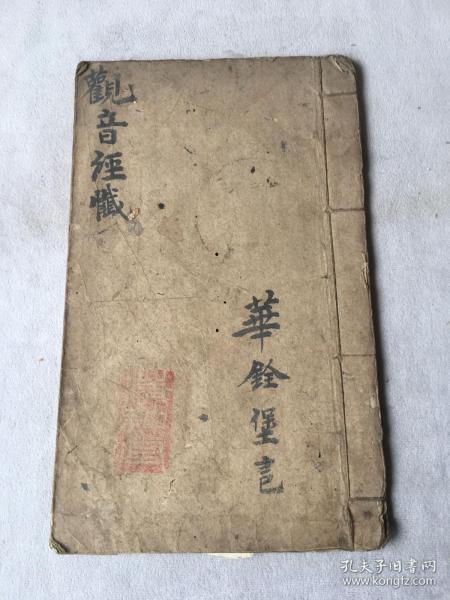 觀音經懺
華銓堡記
孔夫子旧书网
www.kongfz.com